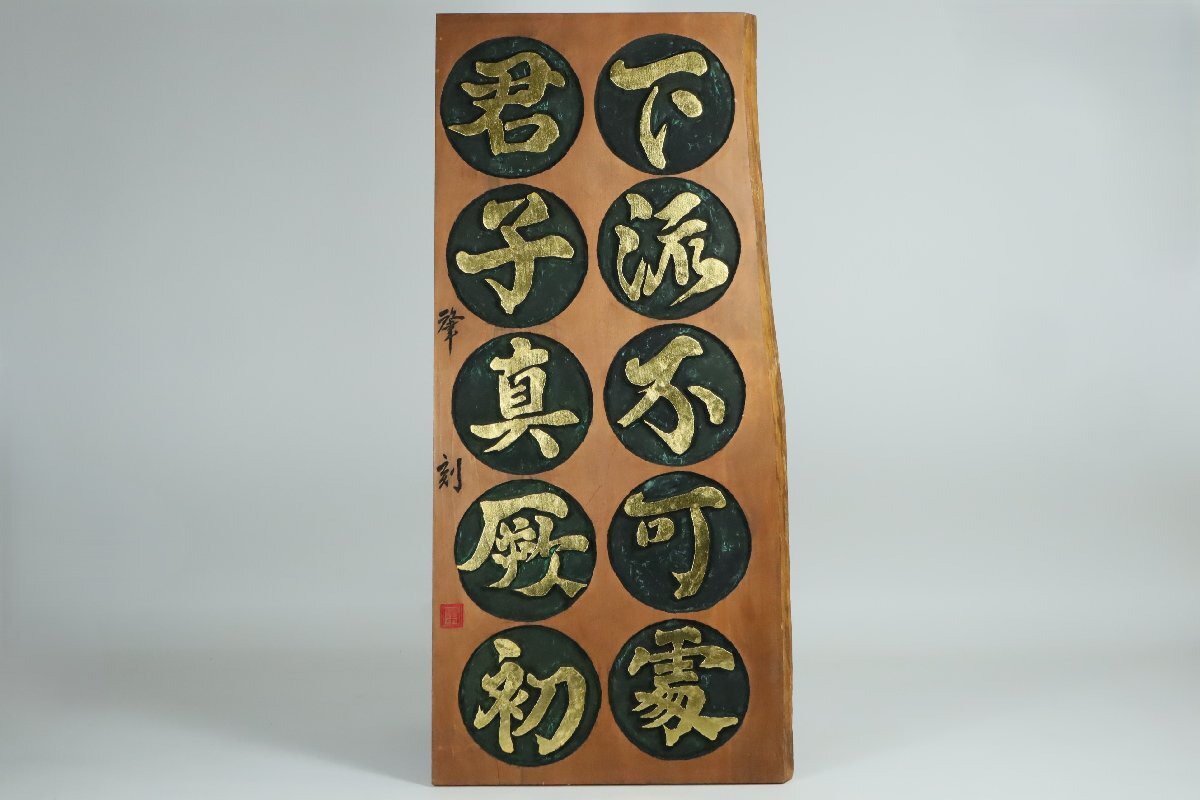 下流不可處
君子真厥初
肇刻